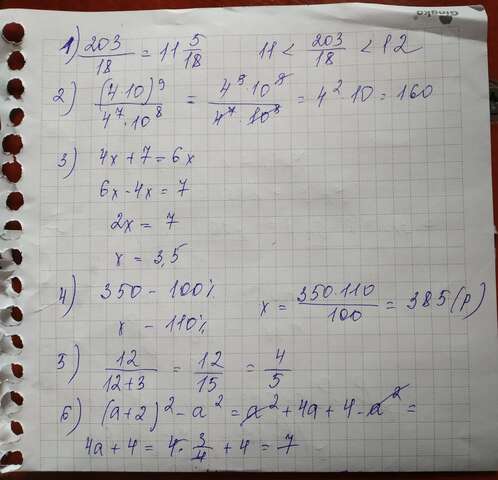 Gingko
1) 203/18 = 11 5/18 11 < 203/18 < 12
2) (4·10)^9 / 4^7·10^8 = 4^9·10^9 / 4^7·10^8 = 4^2·10 = 160
3) 4x + 7 = 6x
6x - 4x = 7
2x = 7
x = 3,5
4) 350 - 100%
x - 110% x = 350·110 / 100 = 385 (р)
5) 12 / 12+3 = 12/15 = 4/5
6) (a+2)^2 - a^2 = a^2 + 4a + 4 - a^2 =
4a + 4 = 4·3/4 + 4 = 7